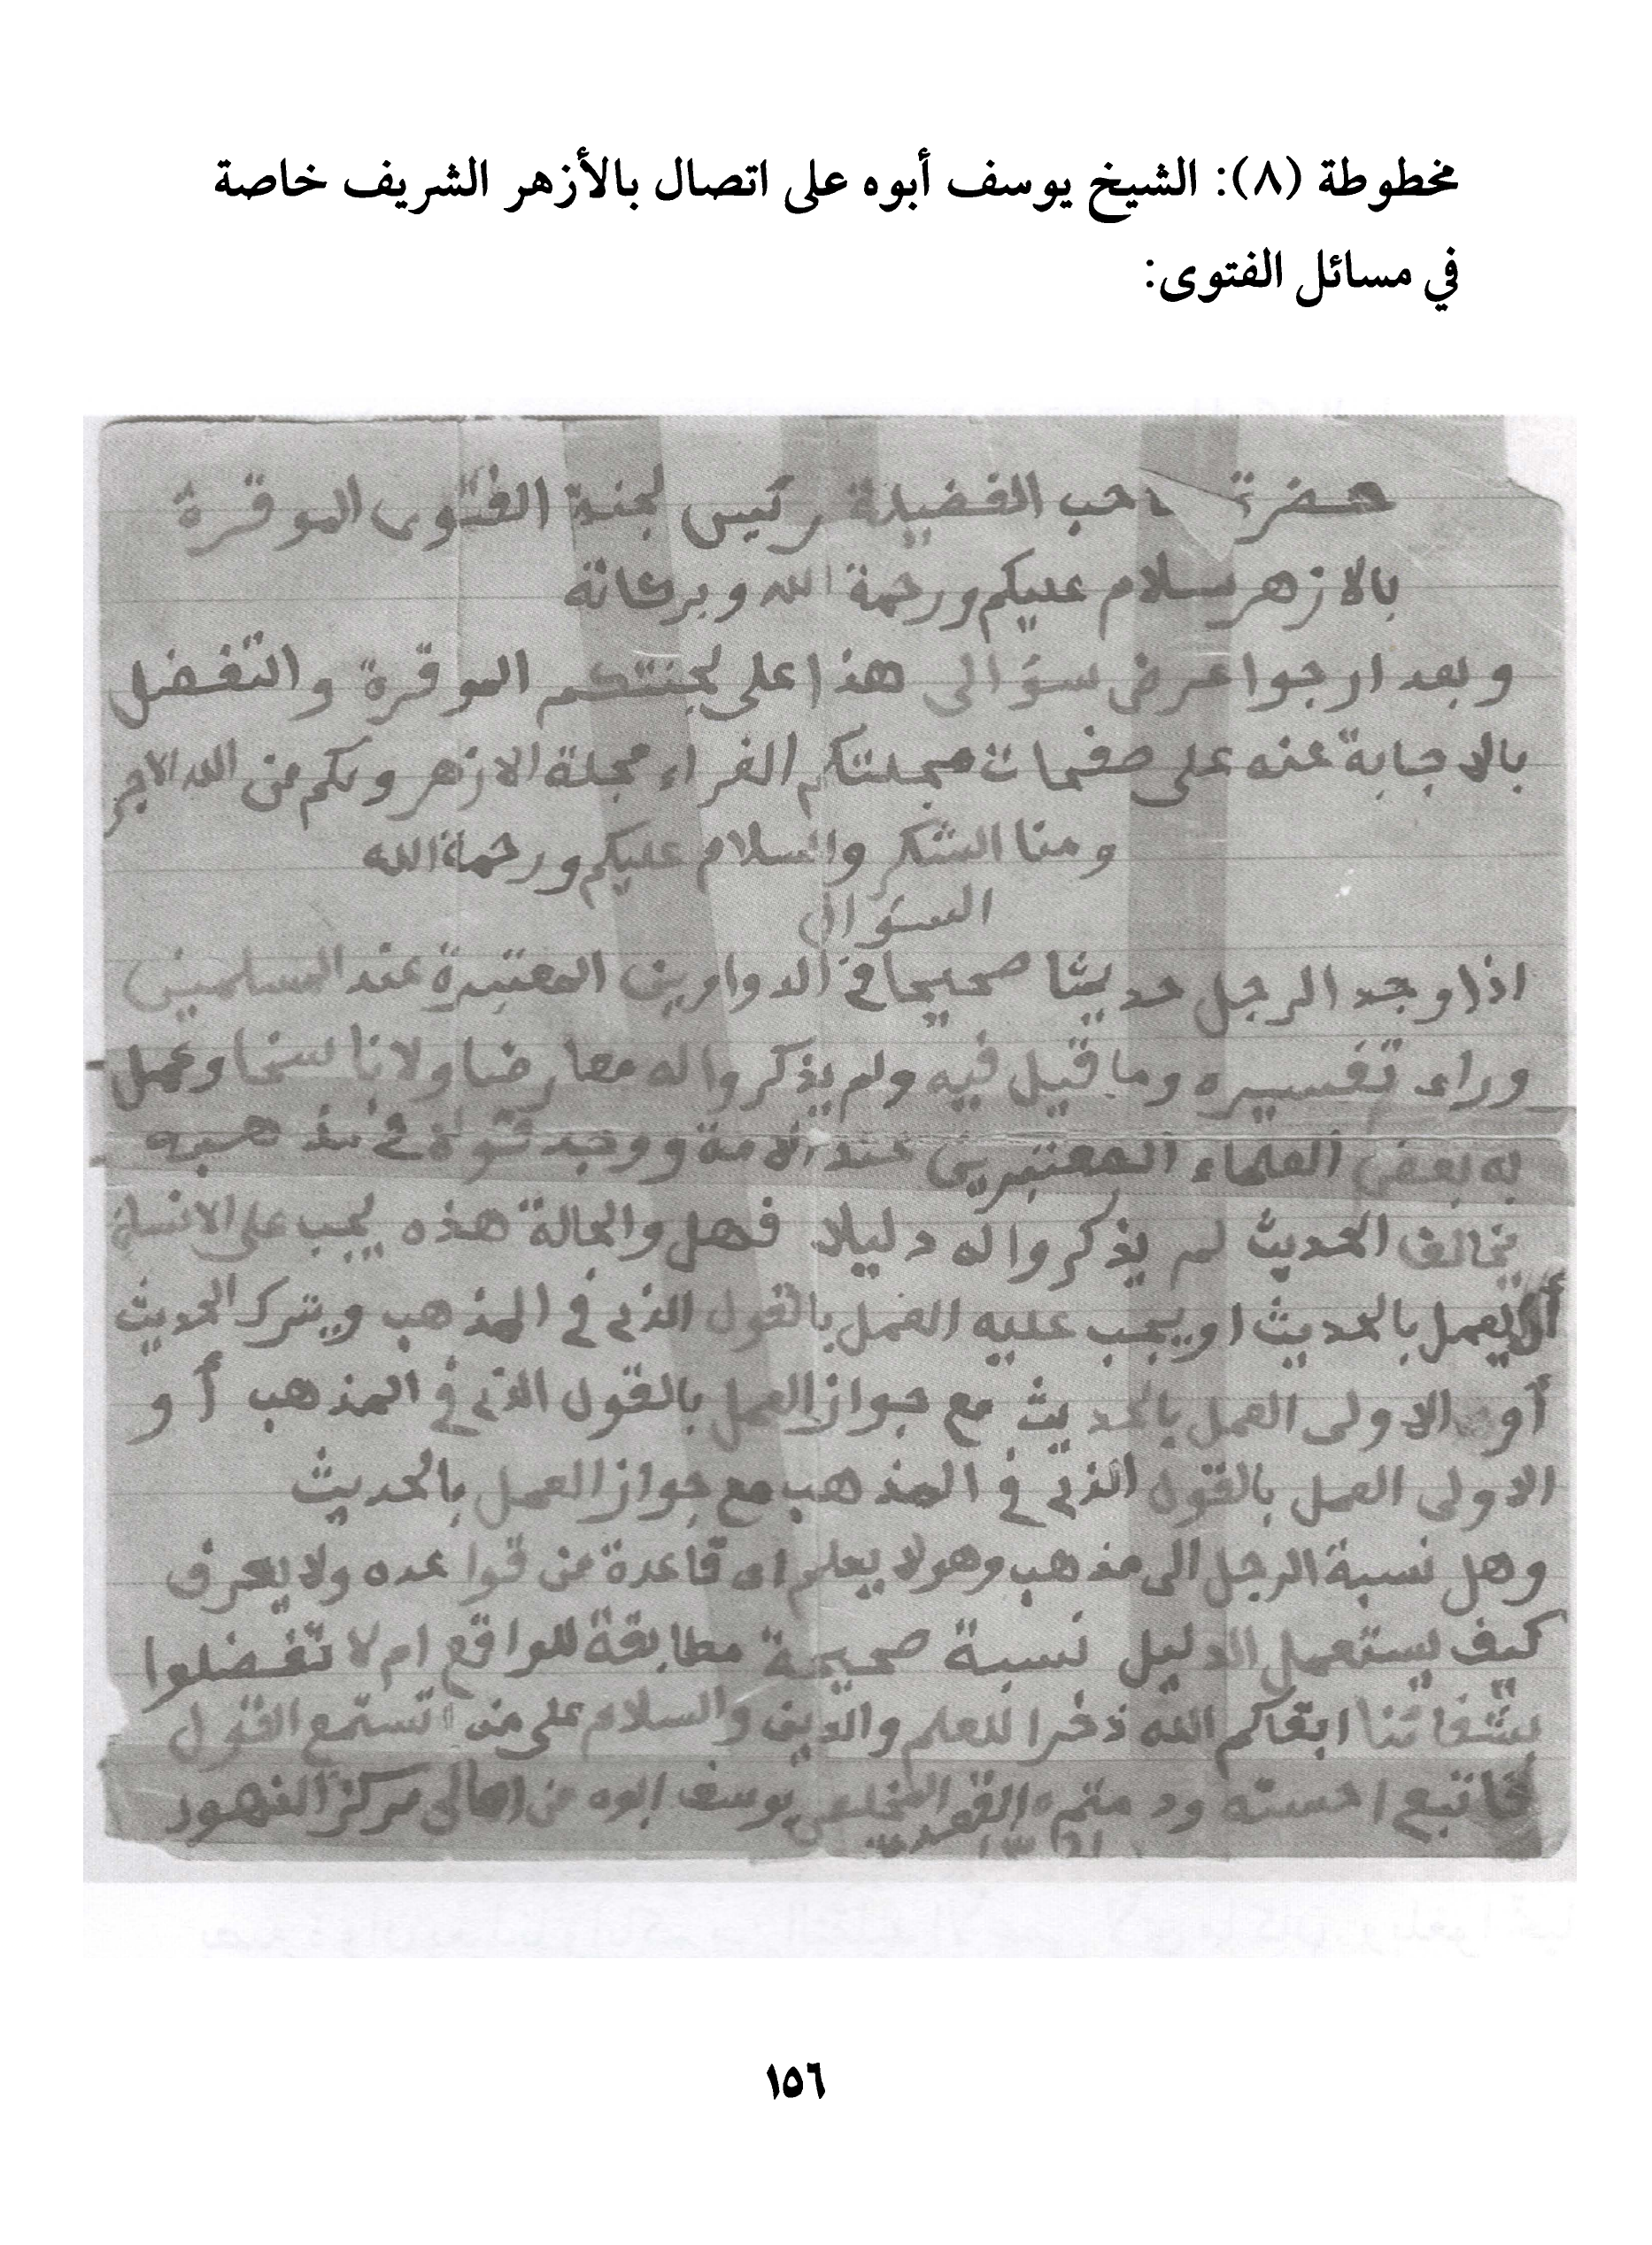 مخطوطة (٨): الشيخ يوسف أبوه على اتصال بالأزهر الشريف خاصة
في مسائل الفتوى:
حضرة احب الفضيلة رئيس لجنة الفتوى الموقرة
بالازهر سلام عليكم ورحمة الله وبركاته
وبعد ارجوا عرض سؤالى هذا على لجنتكم الموقرة والتفضل
بالاجابة عنه على صفحات مجلتكم الغراء مجلة الازهر ولكم من الله الاجر
ومنا الشكر والسلام عليكم ورحمة الله
السؤال
اذا وجد الرجل حديثا صحيحا في الدواوين المعتبرة عند المسلمين
وراى تفسيره وما قيل فيه ولم يذكروا له معارضا ولا ناسخا وعمل
به بعض العلماء المعتبرين عند الامة ووجد قولا في مذهبه
يخالف الحديث لم يذكروا له دليلا فهل والحالة هذه يجب على الانسان
أن يعمل بالحديث او يجب عليه العمل بالقول الذى في المذهب ويترك الحديث
أو الاولى العمل بالحديث مع جواز العمل بالقول الذى في المذهب أو
الاولى العمل بالقول الذى في المذهب مع جواز العمل بالحديث
وهل نسبة الرجل الى مذهب وهو لا يعلم اى قاعدة من قواعده ولا يعرف
كيف يستعمل الدليل نسبة صحيحة مطابقة للواقع ام لا تفضلوا
ابقاكم الله ذخرا للعلم والدين والسلام على من استمع القول
فاتبع احسنه ودمتم المخلص يوسف ابوه من اهالى مركز الفهود
١٥٦